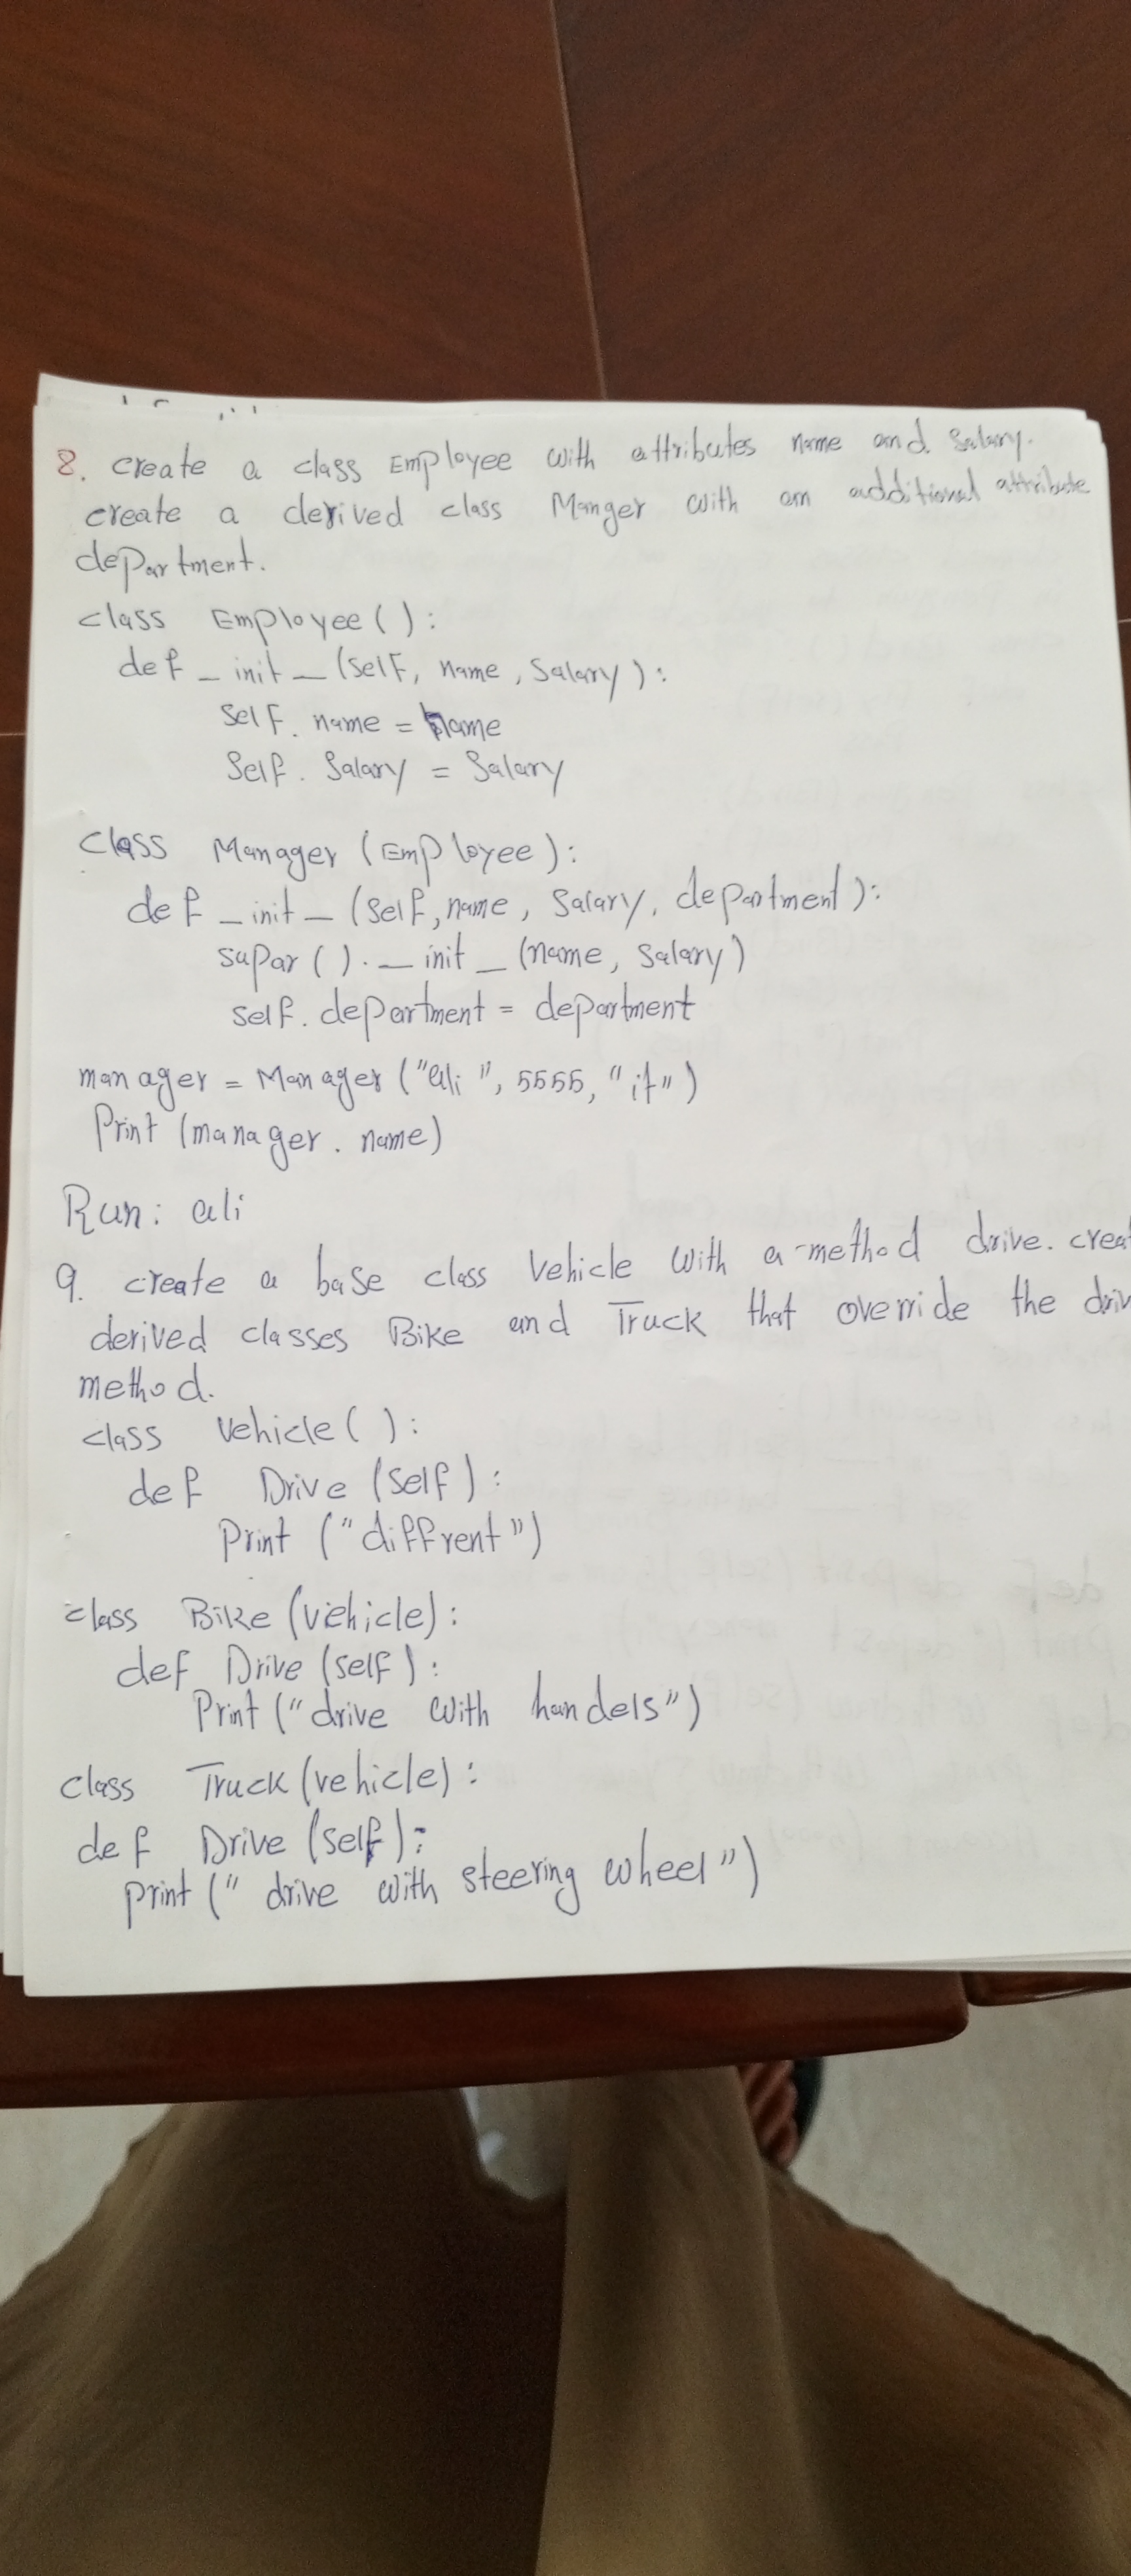 8. create a class Employee with attributes name and salary.
create a derived class Manger with an additional attribute
department.
class Employee():
def _init_(self, name, Salary):
self. name = name
Self. Salary = Salary
class Manager (Employee):
def _init_ (self, name, Salary, department):
supar(). _init_ (name, salary)
self. department = department
manager = Manager ("ali", 5555, "it")
Print (manager. name)
Run: ali
9. create a base class Vehicle with a method drive. creat
derived classes Bike and Truck that override the driv
method.
class Vehicle():
def Drive (self):
Print ("diffrent")
class Bike (vehicle):
def Drive (self):
Print ("drive with handels")
class Truck (vehicle):
def Drive (self):
print (" drive with steering wheel")